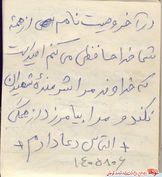 در آخر وصیت نامه ام از همه
شما خداحافظی می کنم امید است
که خداوند مرا شرمنده شهیدان
نکند و مرا بیامرزد از همگی
+ التماس دعا دارم +